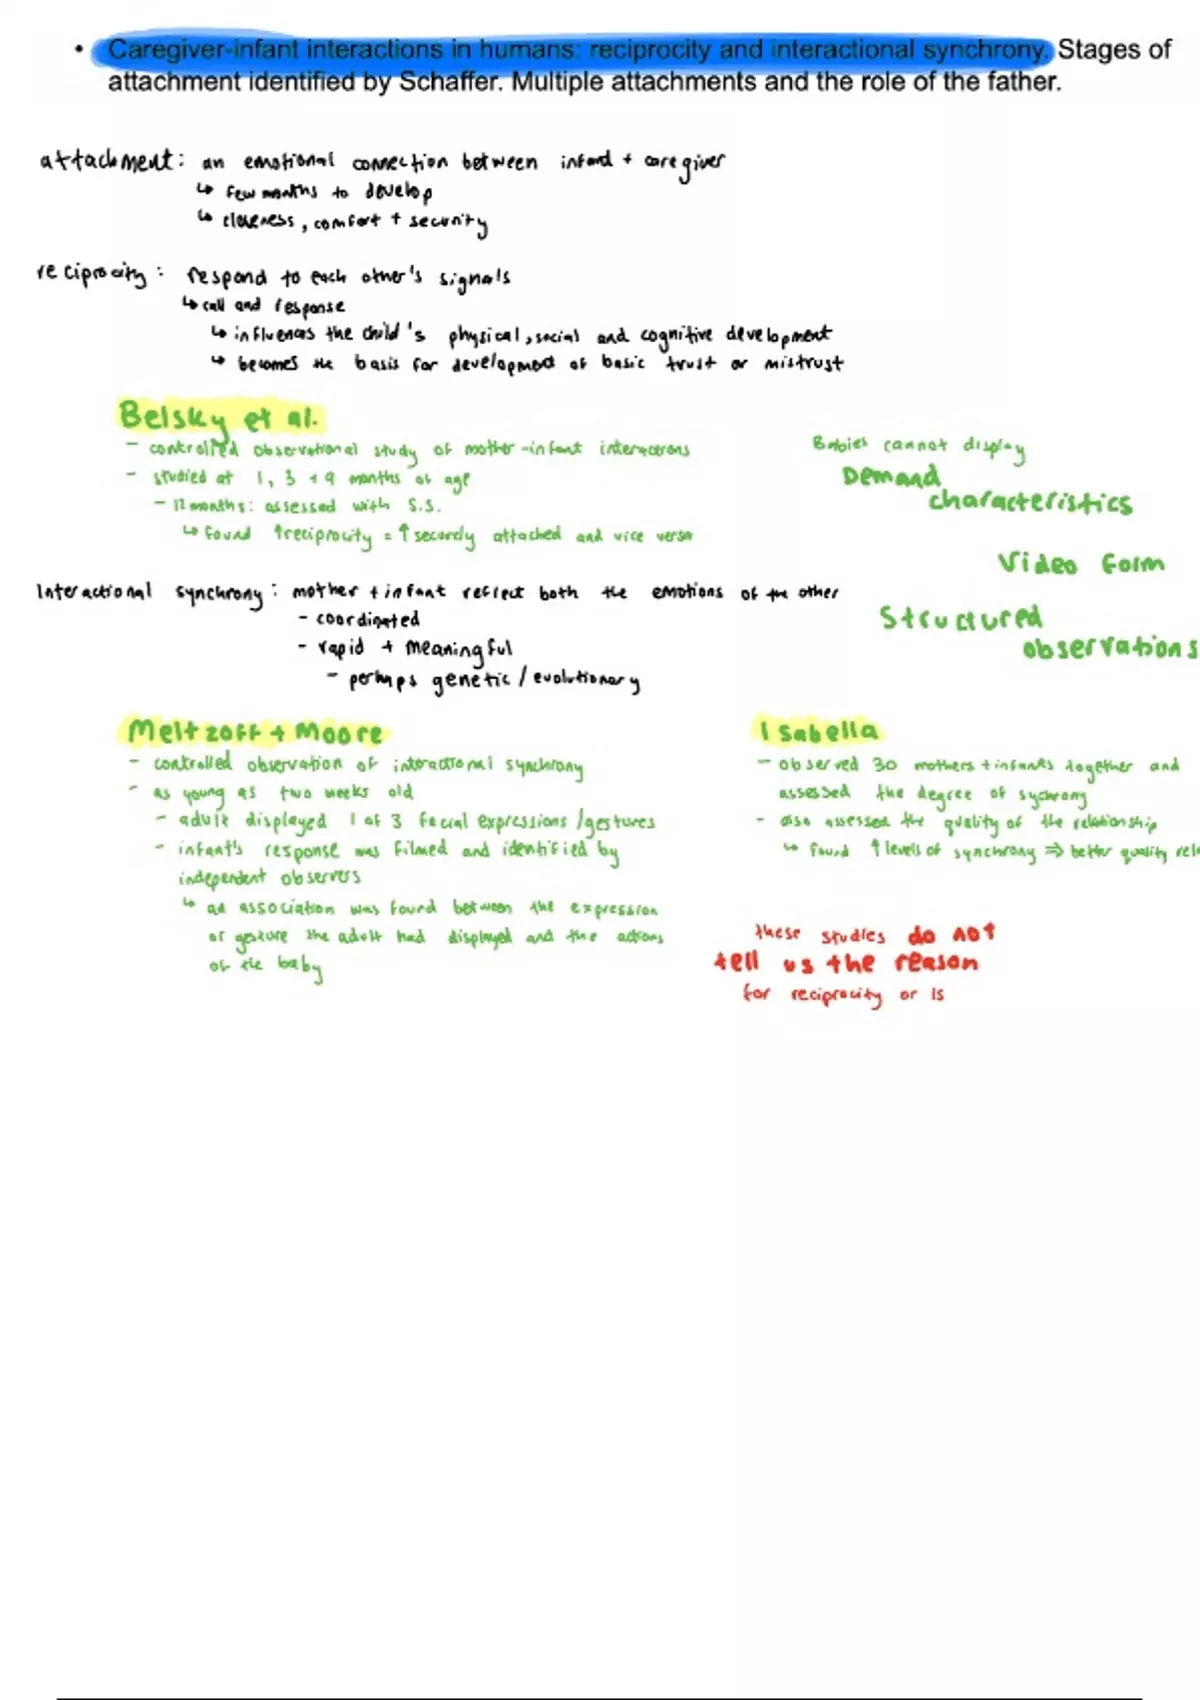 • Caregiver-infant interactions in humans: reciprocity and interactional synchrony. Stages of
attachment identified by Schaffer. Multiple attachments and the role of the father.
attachment: an emotional connection between infant + caregiver
↳ few months to develop
↳ closeness, comfort + security
reciprocity: respond to each other's signals
↳ call and response
↳ influences the child's physical, social and cognitive development
↳ becomes the basis for development of basic trust or mistrust
Belsky et al.
- controlled observational study of mother-infant interactions
- studied at 1, 3 + 9 months of age
- 12 months: assessed with S.S.
↳ found ↑reciprocity = ↑ securely attached and vice versa
Babies cannot display
Demand
characteristics
Video form
Structured
observations
Interactional synchrony: mother + infant reflect both the emotions of the other
- coordinated
- rapid + meaningful
- perhaps genetic / evolutionary
Meltzoff + Moore
- controlled observation of interactional synchrony
- as young as two weeks old
- adult displayed 1 of 3 facial expressions /gestures
- infant's response was filmed and identified by
independent observers
↳ an association was found between the expression
or gesture the adult had displayed and the actions
of the baby
Isabella
- observed 30 mothers + infants together and
assessed the degree of sychrony
- also assessed the quality of the relationship
↳ found ↑ levels of synchrony ⇒ better quality rel
these studies do not
tell us the reason
for reciprocity or IS